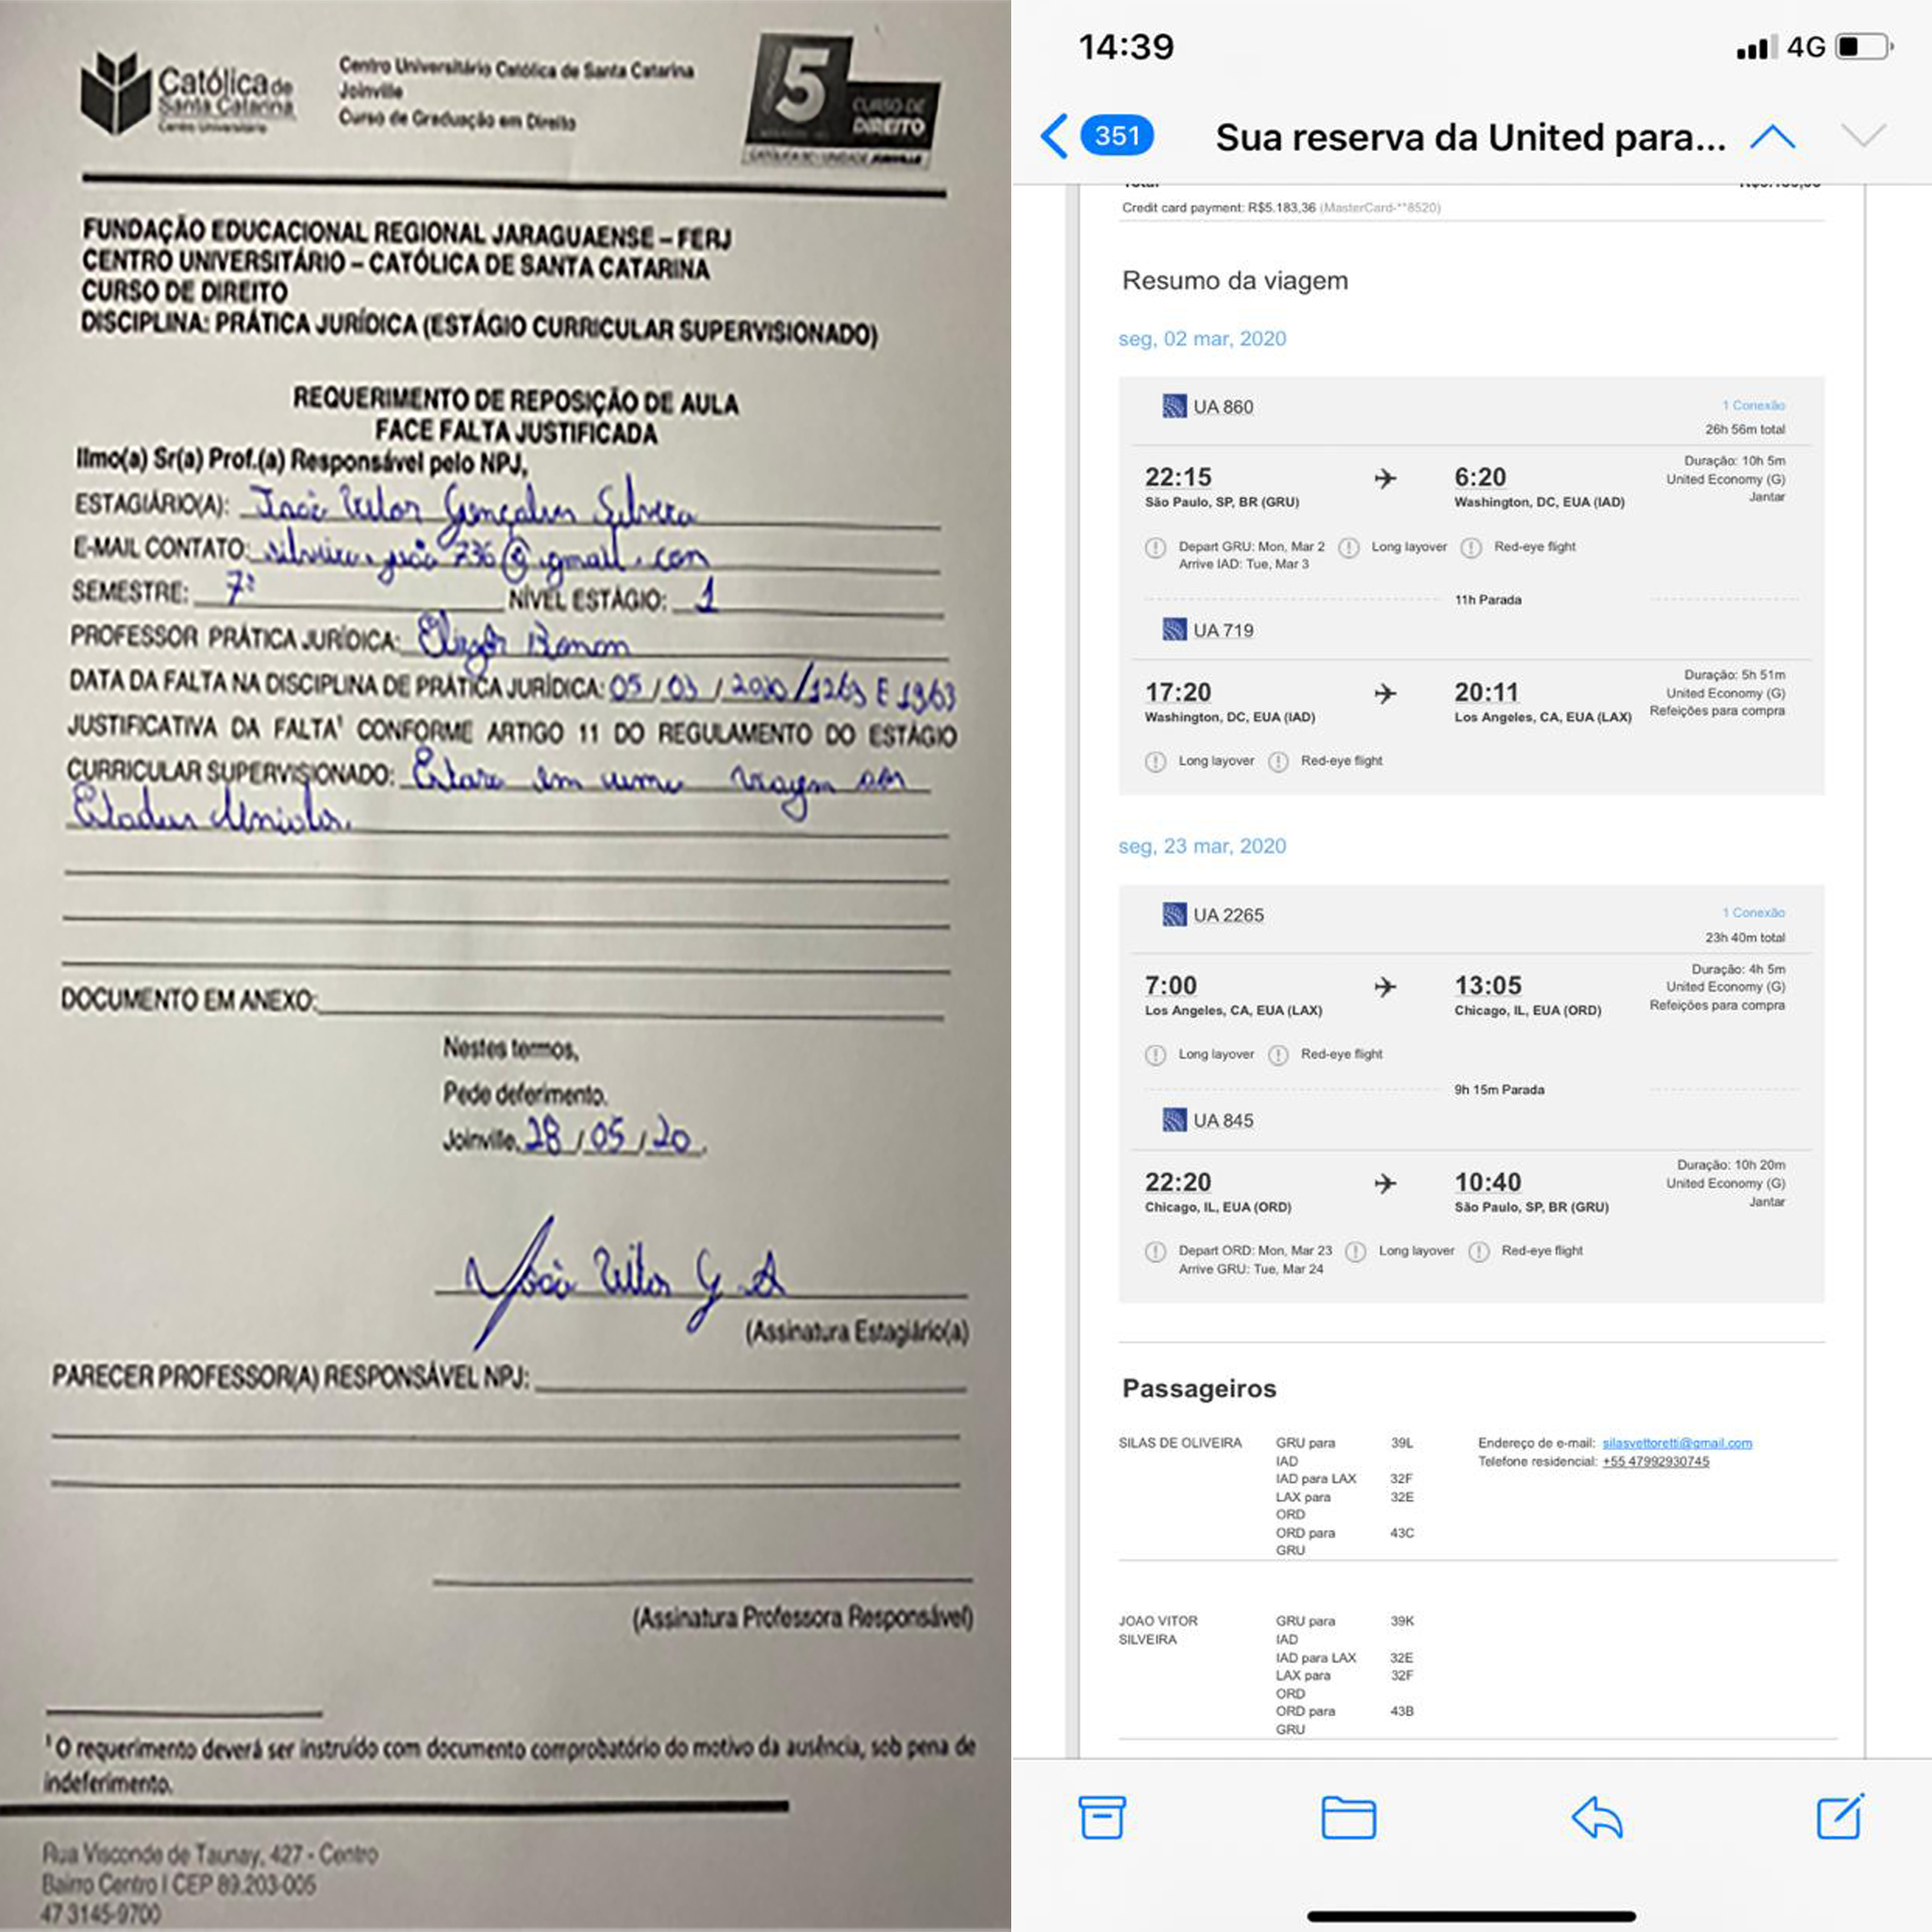 Católica de
Santa Catarina
Centro Universitário
Centro Universitário Católica de Santa Catarina
Joinville
Curso de Graduação em Direito
5
CURSO DE
DIREITO
CATÓLICA SC - UNIDADE JOINVILLE
FUNDAÇÃO EDUCACIONAL REGIONAL JARAGUAENSE – FERJ
CENTRO UNIVERSITÁRIO – CATÓLICA DE SANTA CATARINA
CURSO DE DIREITO
DISCIPLINA: PRÁTICA JURÍDICA (ESTÁGIO CURRICULAR SUPERVISIONADO)
REQUERIMENTO DE REPOSIÇÃO DE AULA
FACE FALTA JUSTIFICADA
Ilmo(a) Sr(a) Prof.(a) Responsável pelo NPJ,
ESTAGIÁRIO(A): João Vitor Gonçalves Silveira
E-MAIL CONTATO: silveira.joão736@gmail.com
SEMESTRE: 7º NÍVEL ESTÁGIO: 1
PROFESSOR PRÁTICA JURÍDICA:
DATA DA FALTA NA DISCIPLINA DE PRÁTICA JURÍDICA: 05/03/2020/12/03 E 19/03
JUSTIFICATIVA DA FALTA¹ CONFORME ARTIGO 11 DO REGULAMENTO DO ESTÁGIO
CURRICULAR SUPERVISIONADO: Estava em uma viagem aos
Estados Unidos.
DOCUMENTO EM ANEXO:
Nestes termos,
Pede deferimento.
Joinville, 28/05/20.
João Vitor G. S
(Assinatura Estagiário(a)
PARECER PROFESSOR(A) RESPONSÁVEL NPJ:
(Assinatura Professora Responsável)
¹ O requerimento deverá ser instruído com documento comprobatório do motivo da ausência, sob pena de
indeferimento.
Rua Visconde de Taunay, 427 - Centro
Bairro Centro | CEP 89.203-005
47 3145-9700
14:39
4G
351
Sua reserva da United para...
Total
Credit card payment: R$5.183,36 (MasterCard-**8520)
Resumo da viagem
seg, 02 mar, 2020
UA 860
1 Conexão
26h 56m total
22:15
6:20
Duração: 10h 5m
United Economy (G)
Jantar
São Paulo, SP, BR (GRU)
Washington, DC, EUA (IAD)
Depart GRU: Mon, Mar 2
Arrive IAD: Tue, Mar 3
Long layover
Red-eye flight
11h Parada
UA 719
17:20
20:11
Duração: 5h 51m
United Economy (G)
Refeições para compra
Washington, DC, EUA (IAD)
Los Angeles, CA, EUA (LAX)
Long layover
Red-eye flight
seg, 23 mar, 2020
UA 2265
1 Conexão
23h 40m total
7:00
13:05
Duração: 4h 5m
United Economy (G)
Refeições para compra
Los Angeles, CA, EUA (LAX)
Chicago, IL, EUA (ORD)
Long layover
Red-eye flight
9h 15m Parada
UA 845
22:20
10:40
Duração: 10h 20m
United Economy (G)
Jantar
Chicago, IL, EUA (ORD)
São Paulo, SP, BR (GRU)
Depart ORD: Mon, Mar 23
Arrive GRU: Tue, Mar 24
Long layover
Red-eye flight
Passageiros
SILAS DE OLIVEIRA
GRU para
IAD
39L
IAD para LAX 32F
LAX para
ORD
32E
ORD para
GRU
43C
Endereço de e-mail: silasvettoretti@gmail.com
Telefone residencial: +55 47992930745
JOAO VITOR
SILVEIRA
GRU para
IAD
39K
IAD para LAX 32E
LAX para
ORD
32F
ORD para
GRU
43B